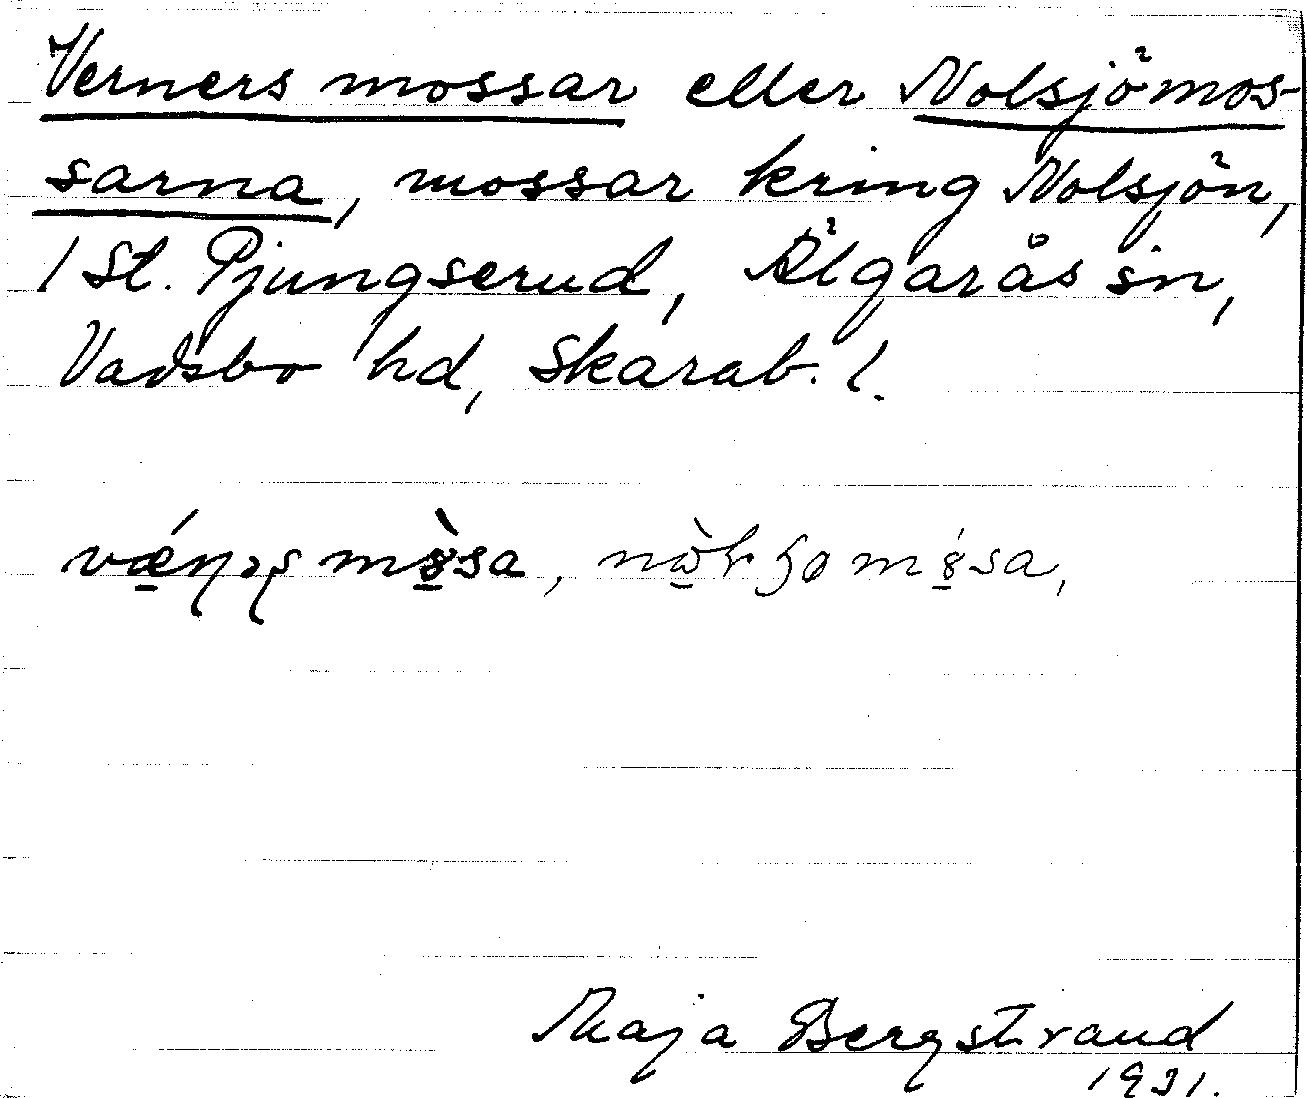 Verners mossar eller Nolsjömos-
sarna, mossar kring Nolsjön,
/ St. Pjungserud, Älgarås sn,
Vadsbo hd, Skarab. l.
mossa,
Maja Bergstrand
1931.